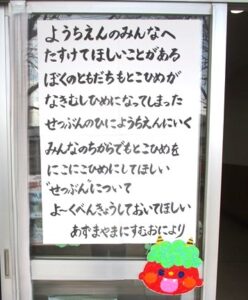 ようちえんのみんなへ
たすけてほしいことがある
ぼくのともだちもとこひめが
なきむしひめになってしまった
せつぶんのひにようちえんにいく
みんなのちからでもとこひめを
にこにこひめにしてほしい
"せつぶん"について
よ〜くべんきょうしておいてほしい
あずまやまにすむおにより